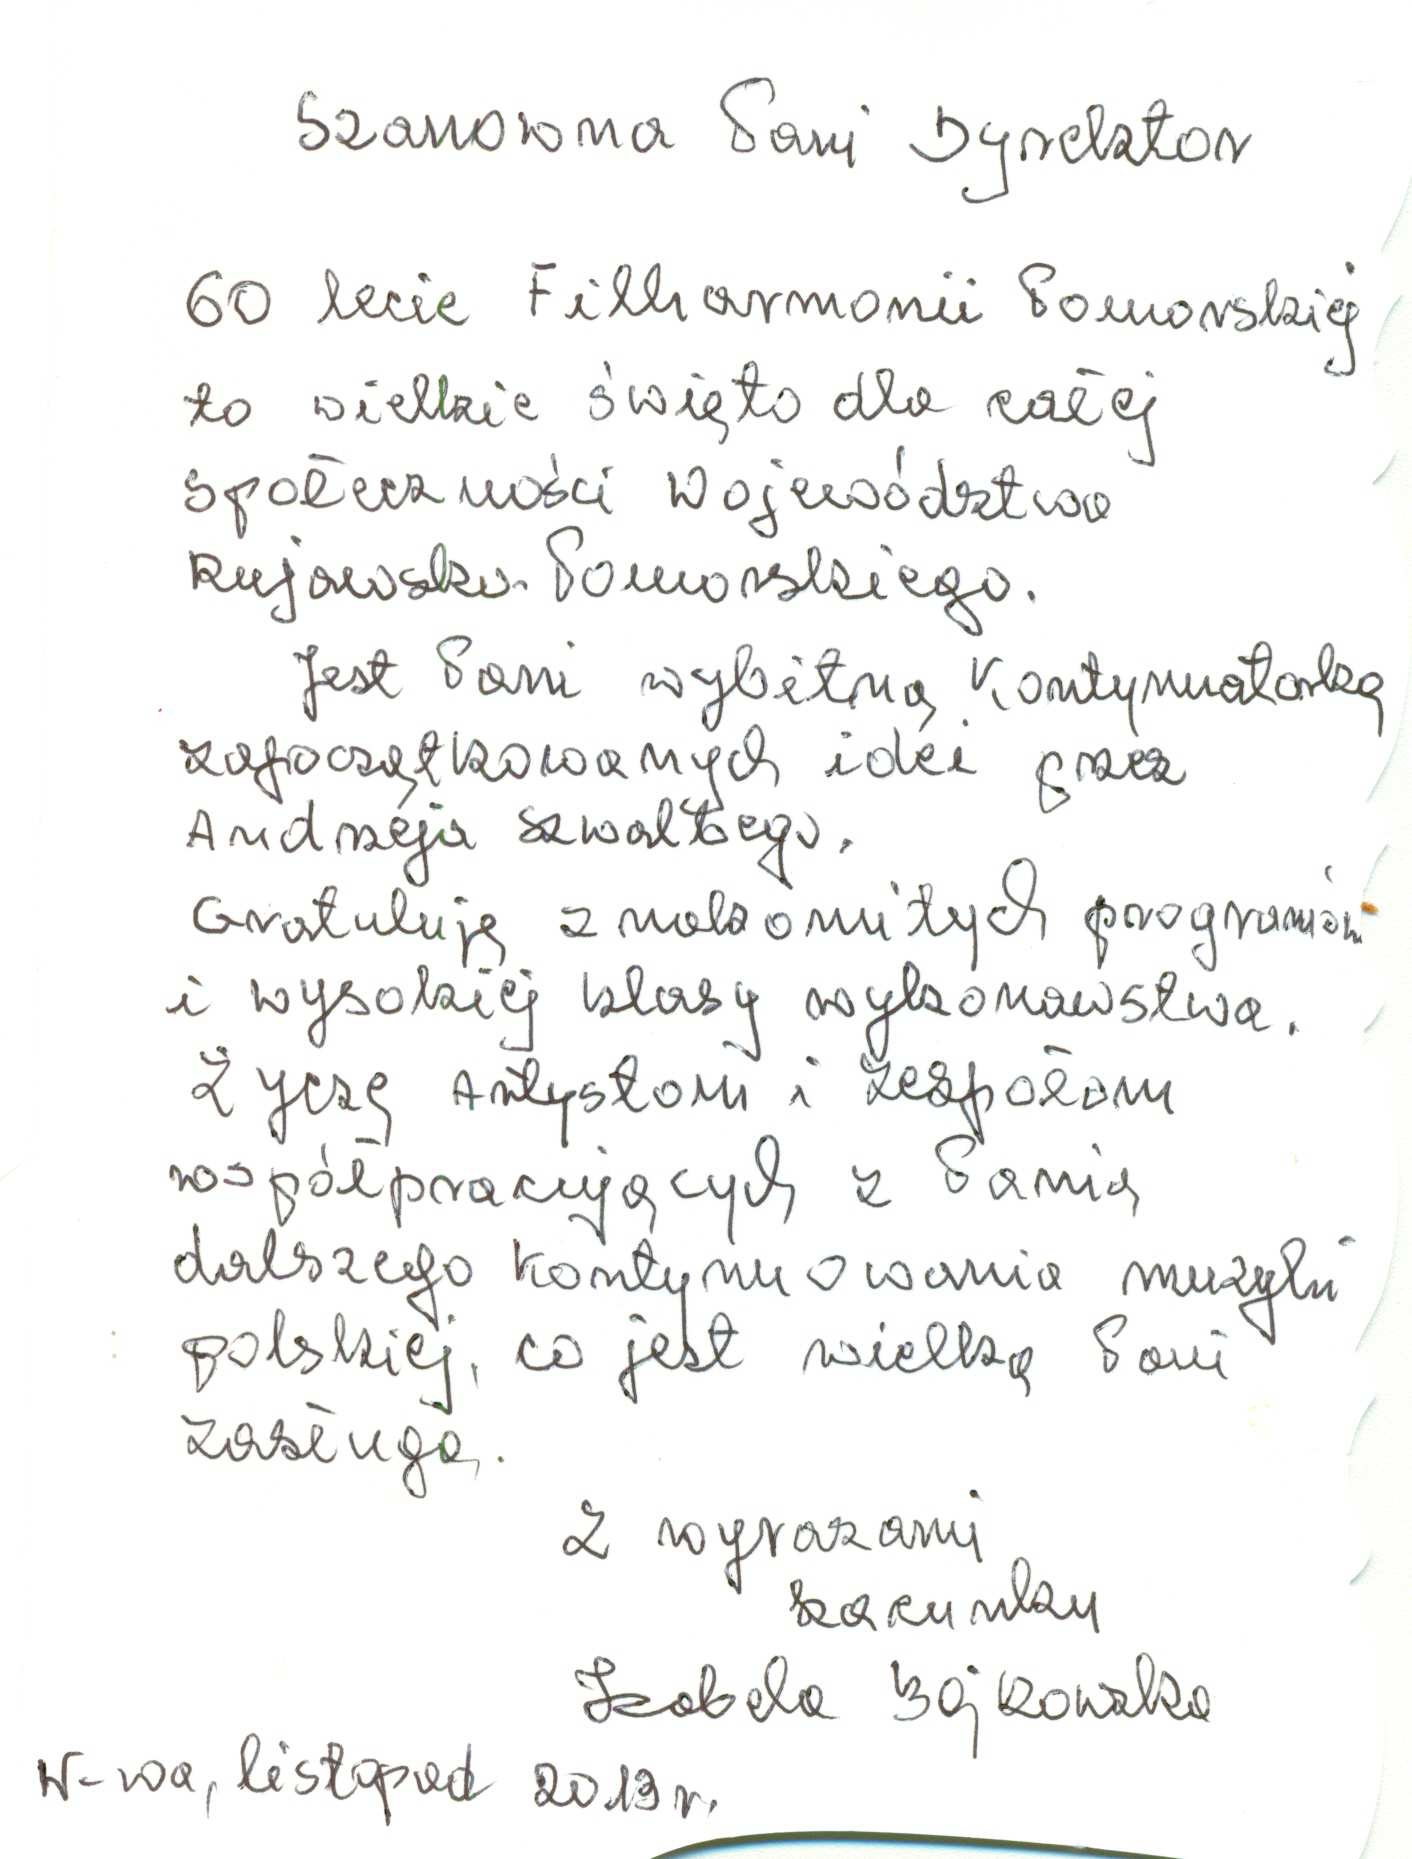 Szanowna Pani Dyrektor
60 lecie Filharmonii Pomorskiej
to wielkie święto dla całej
społeczności Województwa
Kujawsko-Pomorskiego.
Jest Pani wybitną Kontynuatorką
zapoczątkowanych idei przez
Andrzeja Szwalbego.
Gratuluję znakomitych programów
i wysokiej klasy wykonawstwa.
Życzę Artystom i Zespołom
współpracujących z Panią
dalszego kontynuowania muzyki
polskiej, co jest wielką Pani
zasługą.
Z wyrazami
szacunku
Izabela Bojkowska
W-wa, listopad 2013 r.